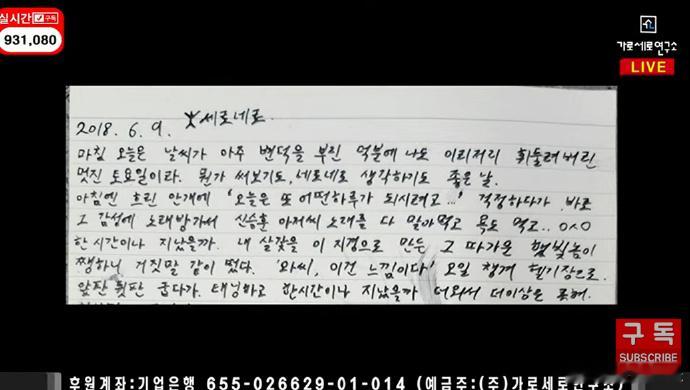 실시간 구독
931,080
가로세로연구소
LIVE
2018. 6. 9. 세로네로.
마침 오늘은 날씨가 아주 변덕을 부린 덕분에 나도 이리저리 휘둘려버린
멋진 토요일이라. 뭔가 써보기도, 네로네로 생각하기도 좋은 날.
아침엔 흐린 안개에 '오늘은 또 어떤하루가 되시려고...' 걱정하다가 바로
그 감성에 노래방가서 신승훈 아저씨 노래를 다 말아먹고 욕도 먹고.. ㅇㅅㅇ
한 시간이나 지났을까. 내 살갗을 이 지경으로 만든 그 따가운 햇빛놈이
쨍하니 거짓말 같이 떴다. '와씨, 이건 느낌이다' 오일 챙겨 헬기장으로.
앞판 뒷판 굽다가. 태닝하고 한시간이나 지났을까 더워서 더이상은 못해.
구독
SUBSCRIBE
후원계좌:기업은행 655-026629-01-014 (예금주:(주)가로세로연구소)